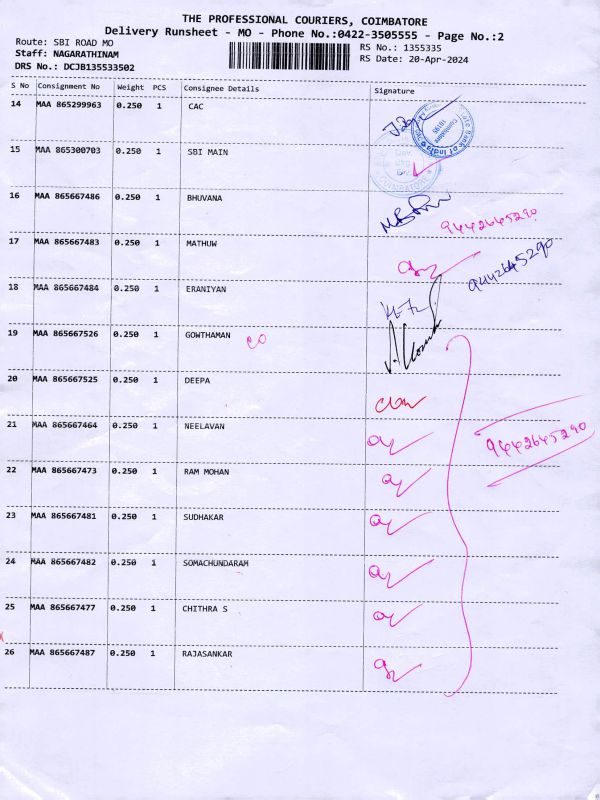 THE PROFESSIONAL COURIERS, COIMBATORE
Delivery Runsheet - MO - Phone No.:0422-3505555 - Page No.:2
Route: SBI ROAD MO
RS No.: 1355335
Staff: NAGARATHINAM
RS Date: 20-Apr-2024
DRS No.: DCJB135533502
S No Consignment No Weight PCS Consignee Details Signature
14 MAA 865299963 0.250 1 CAC
15 MAA 865300703 0.250 1 SBI MAIN
16 MAA 865667486 0.250 1 BHUVANA
9442645290
17 MAA 865667483 0.250 1 MATHUW
9442645290
18 MAA 865667484 0.250 1 ERANIYAN
19 MAA 865667526 0.250 1 GOWTHAMAN
20 MAA 865667525 0.250 1 DEEPA
21 MAA 865667464 0.250 1 NEELAVAN
9442645290
22 MAA 865667473 0.250 1 RAM MOHAN
23 MAA 865667481 0.250 1 SUDHAKAR
24 MAA 865667482 0.250 1 SOMACHUNDARAM
25 MAA 865667477 0.250 1 CHITHRA S
26 MAA 865667487 0.250 1 RAJASANKAR